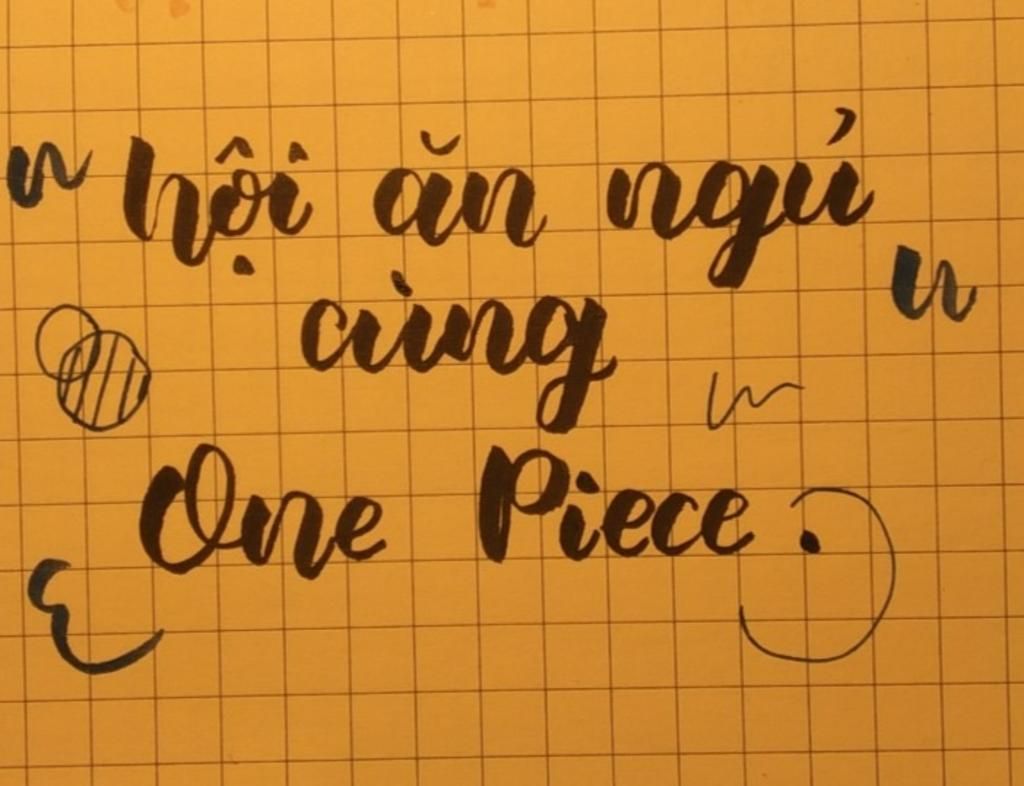 hội ăn ngủ
cùng
One Piece.